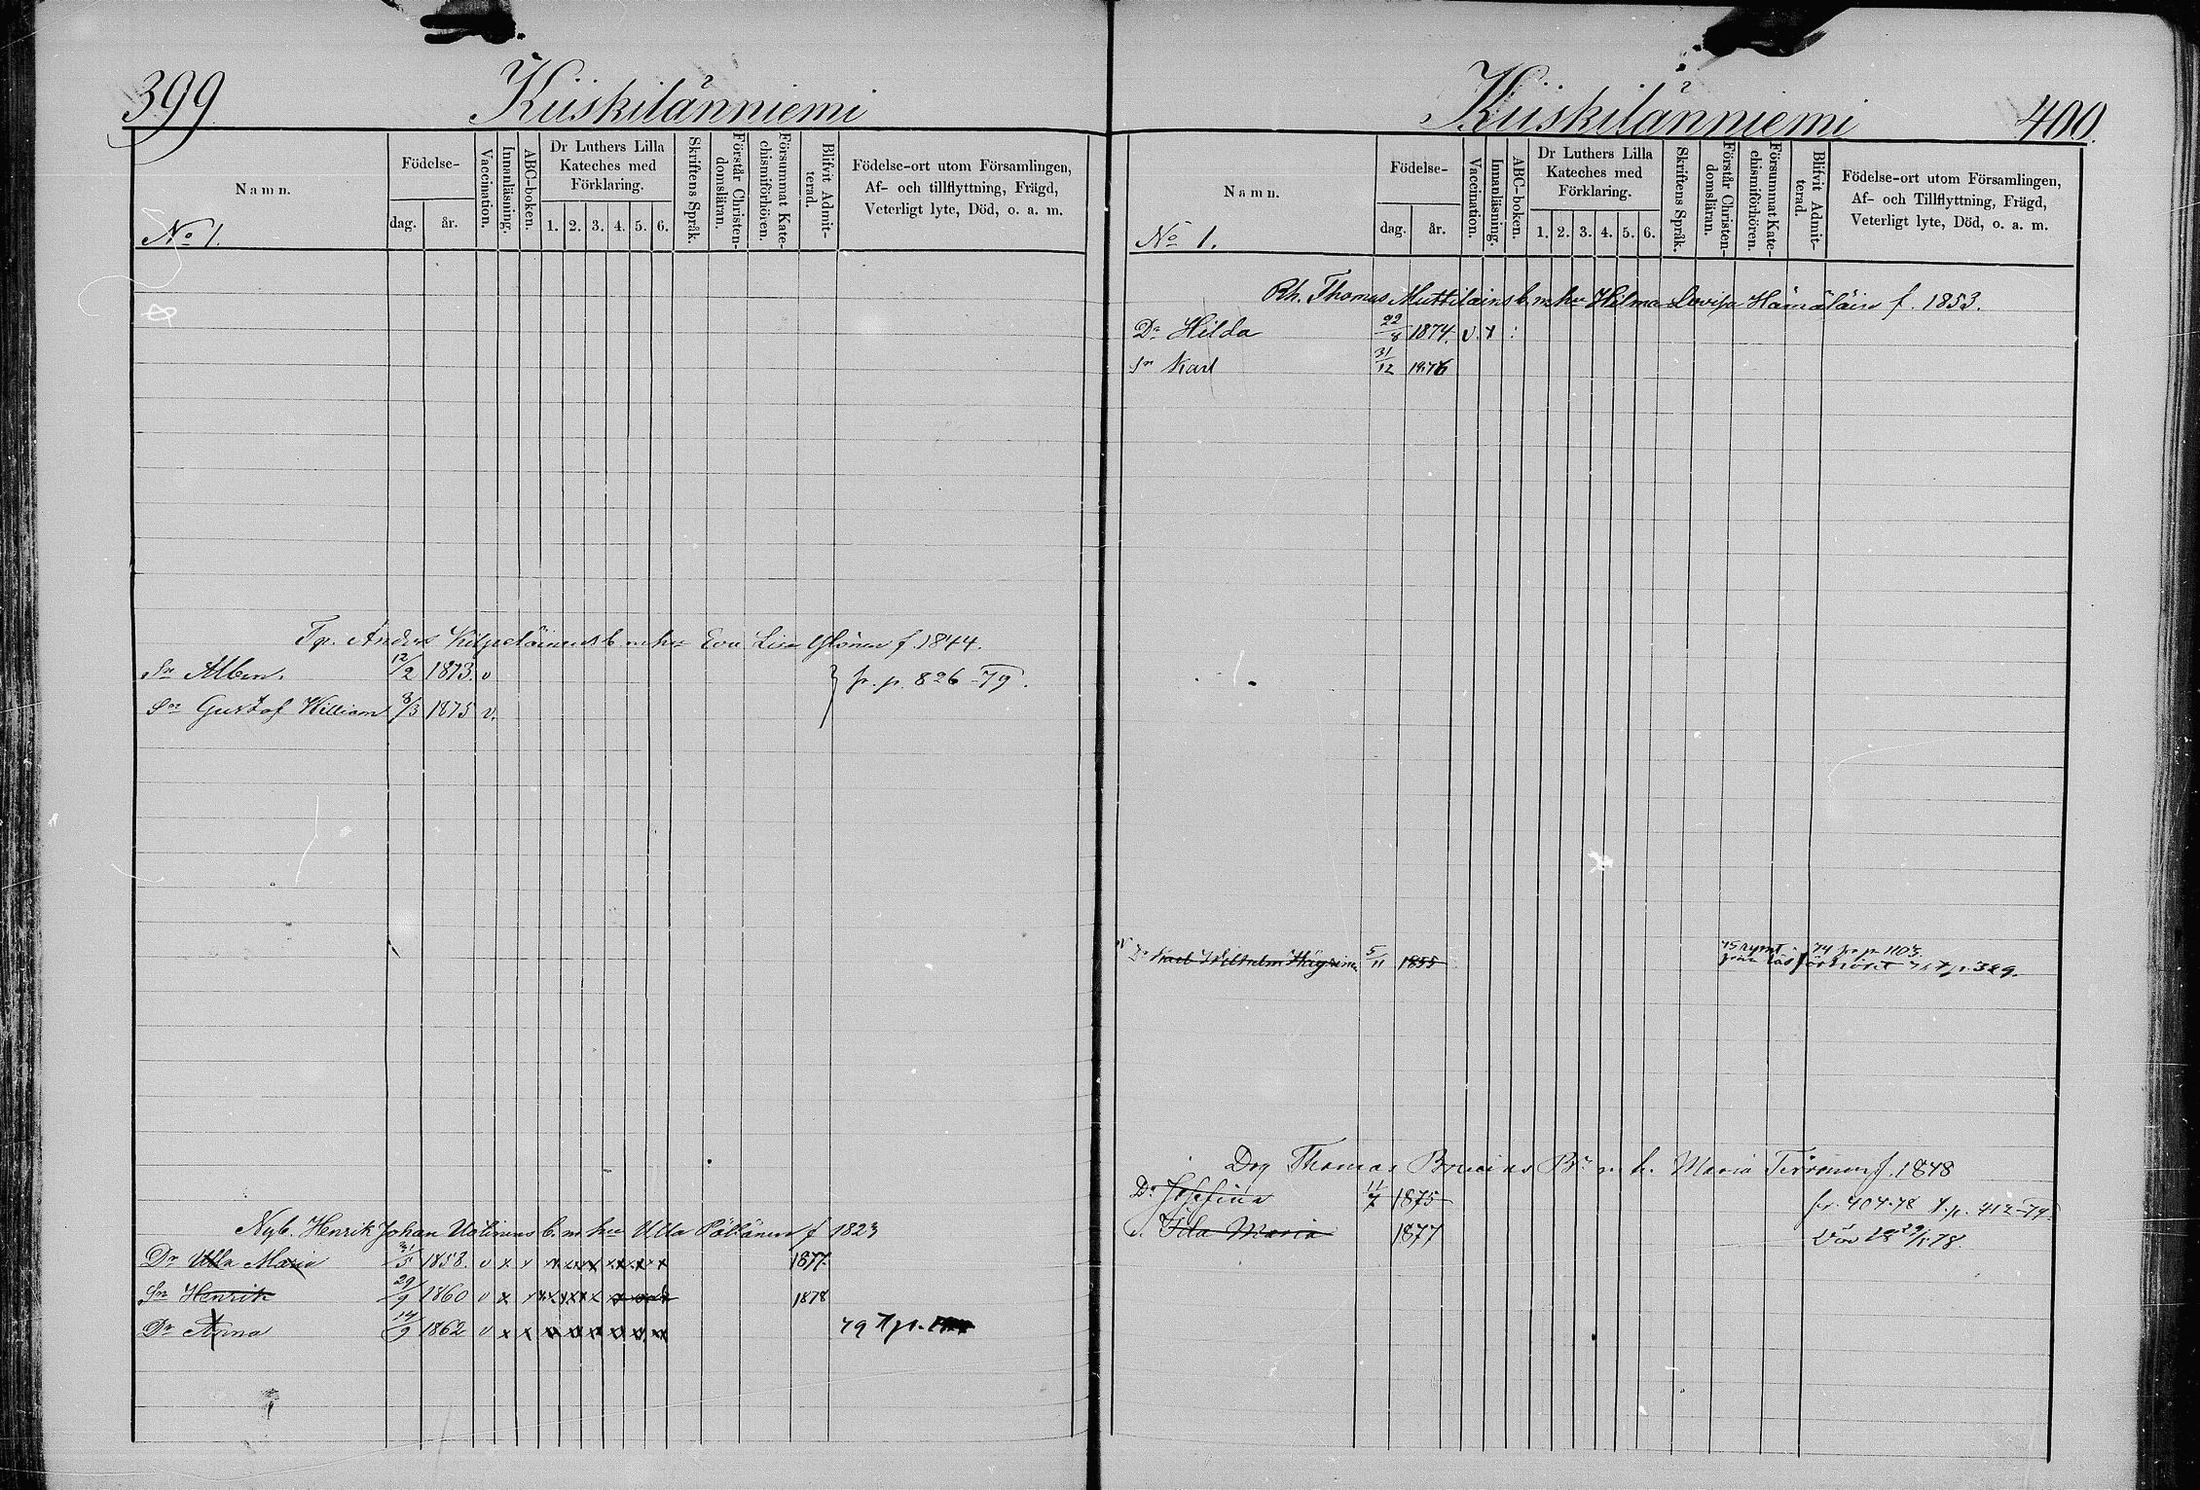 399
Kiiskilänniemi
Namn.
No 1.
Födelse-
dag.
år.
Vaccination.
Innanläsning.
ABC-boken.
Dr Luthers Lilla
Kateches med
Förklaring.
1. 2. 3. 4. 5. 6.
Skriftens Språk.
Förstår Christen-
domsläran.
Försummat Kate-
chismiförhören.
Blifvit Admit-
terad.
Födelse-ort utom Församlingen,
Af- och tillflyttning, Frägd,
Veterligt lyte, Död, o. a. m.
Eva Lisa f. 1844.
Sn Alben. 12/2 1873. v
Sn Gustaf William 8/3 1875 v.
} fr. p. 826-79.
Nyb. Henrik Johan b. m. hu Ulla f 1823
Dr Ulla Maria 31/5 1858. v x x 1877.
Sn Henrik 29/9 1860 v x 1878
Dr Anna 14/9 1862 v x x 79 t p.
Kiiskilänniemi
400.
Namn.
No 1.
Födelse-
dag.
år.
Vaccination.
Innanläsning.
ABC-boken.
Dr Luthers Lilla
Kateches med
Förklaring.
1. 2. 3. 4. 5. 6.
Skriftens Språk.
Förstår Christen-
domsläran.
Försummat Kate-
chismiförhören.
Blifvit Admit-
terad.
Födelse-ort utom Församlingen,
Af- och Tillflyttning, Frägd,
Veterligt lyte, Död, o. a. m.
Rh. Thomas b. m. hu Hilma Lovisa Hämäläin f. 1853.
Dr Hilda 22/8 1874. v. x :
Sn Karl 31/12 1876
Karl Wilhelm 5/11 1855
74 fr p 1103.
t p. 389.
Drg Thomas m. h. Maria f. 1848
Dr Josefina 11/7 1875 fr. 404-78 t. p. 412-79.
Maria 1877